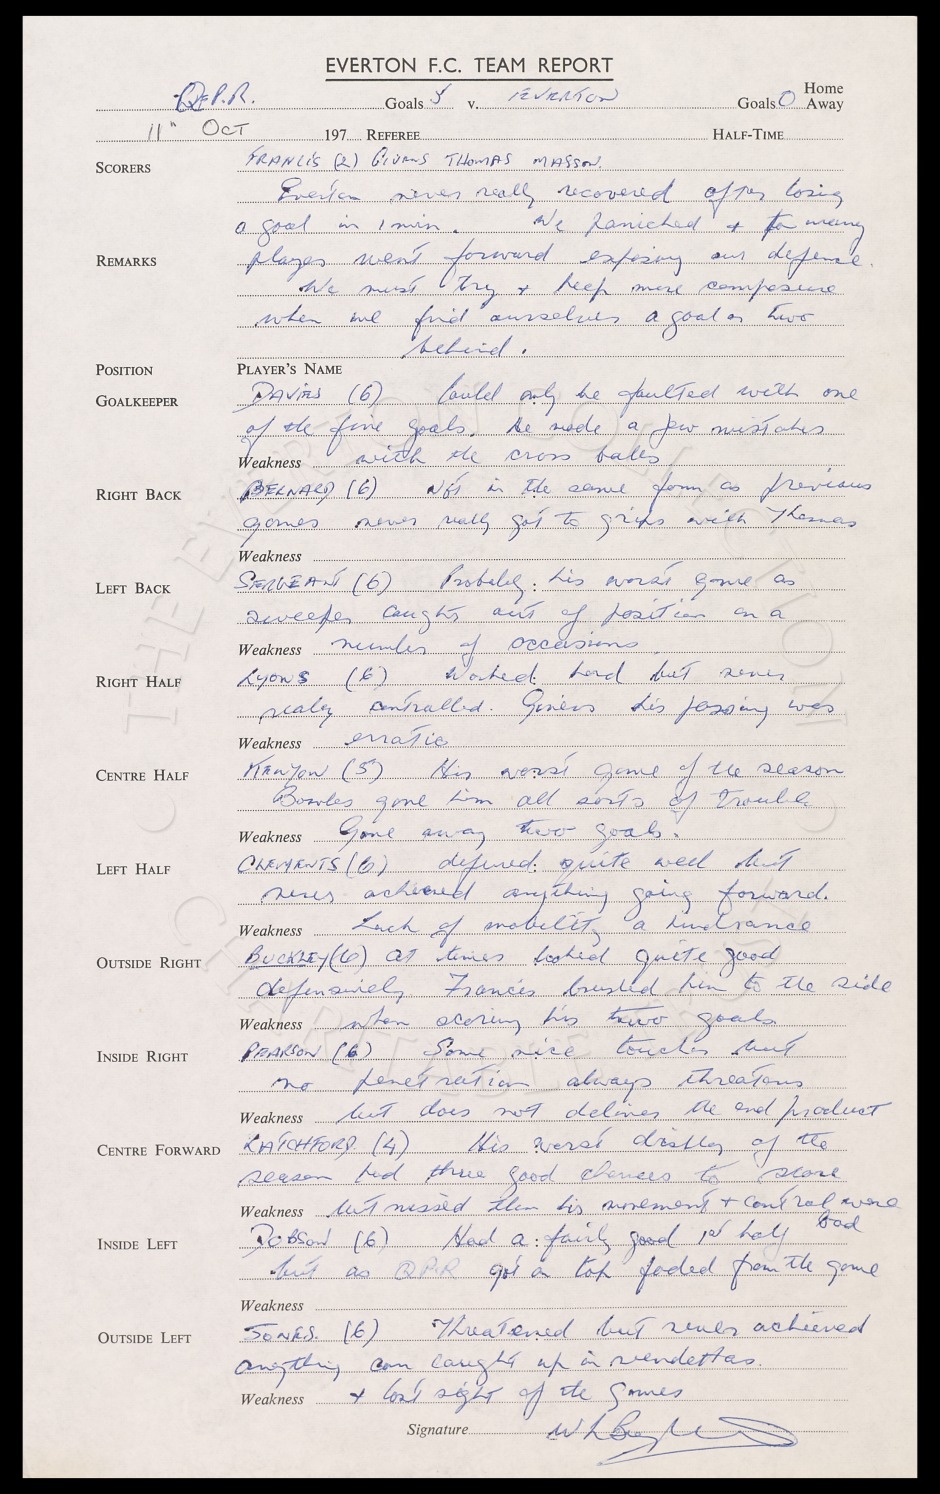 EVERTON F.C. TEAM REPORT
Q.P.R. Goals 5 v. EVERTON Goals 0 Home
Away
11th Oct 197 REFEREE HALF-TIME
SCORERS FRANCIS (2) GIVENS THOMAS MASSON.
Everton never really recovered after losing
a goal in 1 min. We panicked + to many
REMARKS players went forward exposing our defence.
We must try + keep more composure
when we find ourselves a goal or two
behind.
POSITION PLAYER'S NAME
GOALKEEPER DAVIES (6) Could only be faulted with one
of the five goals. he made a few mistakes
Weakness with the cross balls
RIGHT BACK BERNARD (6) Not in the same form as previous
games never really got to grips with Thomas
Weakness
LEFT BACK SERGEANT (6) Probably his worst game as
sweeper caught out of position on a
Weakness number of occasions
RIGHT HALF LYONS (6) Worked hard but never
really controlled. Givens his passing was
Weakness erratic
CENTRE HALF KENYON (5) His worst game of the season
Bowles gave him all sorts of trouble
Weakness Gave away two goals.
LEFT HALF CLEMENTS (6) defend quite well but
never achieved anything going forward.
Weakness Lack of mobility a hindrance
OUTSIDE RIGHT BUCKLEY (6) at times looked quite good
defensively Francis brushed him to the side
Weakness when scoring his two goals
INSIDE RIGHT PEARSON (6) Some nice touches but
no penetration always threatens
Weakness but does not deliver the end product
CENTRE FORWARD LATCHFORD. (4) His worst display of the
season had three good chances to score
Weakness but missed them his movement + control were
bad
INSIDE LEFT DOBSON (6) Had a fairly good 1st half
but as QPR got on top faded from the game
Weakness
OUTSIDE LEFT JONES. (6) Threatened but never achieved
anything can caught up in vendettas.
Weakness + lost sight of the games
Signature